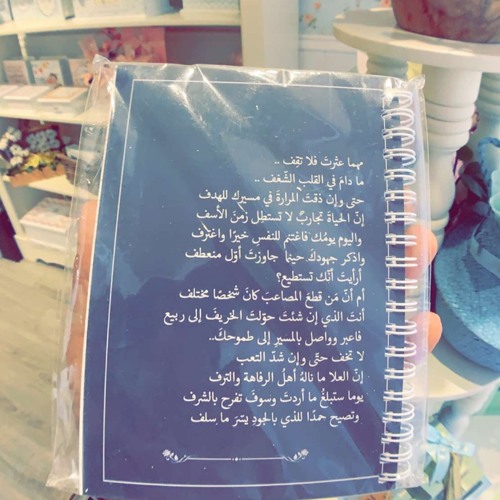 مهما عثرتَ فلا تقِف ..
ما دامَ في القلبِ الشّغف ..
حتى وإن ذقتَ المرارةَ في مسيرِك للهدف
إنّ الحياةَ تجاربٌ لا تستطِل زمنَ الأسف
واليوم يومُك فاغتنم للنفسِ خيرًا واغترف
واذكر جهودكَ حينما جاوزتَ أوّل منعطف
أرأيتَ أنّك تستطيع؟
أم أنّ مَن قطعَ المصاعبَ كانَ شخصًا مختلف
أنتَ الذي إن شئتَ حوّلتَ الخريفَ إلى ربيع
فاعبر وواصل بالمسيرِ إلى طموحكَ..
لا تخف حتّى وإن شدّ التعب
إنّ العلا ما نالهُ أهلُ الرفاهة والترف
يوما ستبلغُ ما أردتَ وسوفَ تفرح بالشرف
وتصيح حمدًا للذي بالجودِ يسّرَ ما سلف